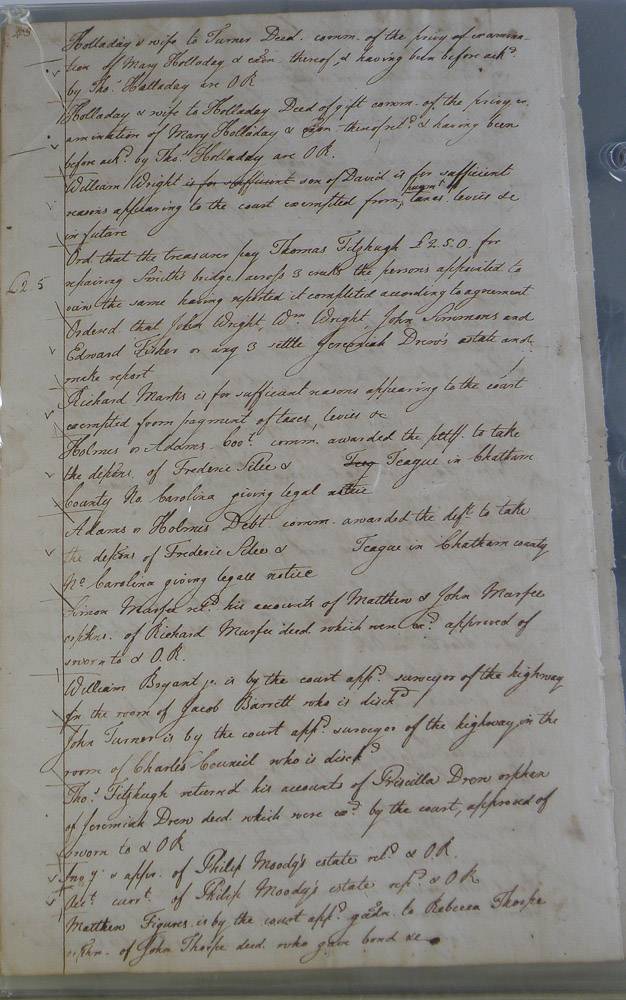 Holladay & wife to Turner Deed. comm. of the privy of examina
tion of Mary Holladay & exõn thereof, & having been before ackd.
by Thos. Holladay are OR
Holladay & wife to Holladay Deed of gift comm. of the privy ex
amination of Mary Holladay & exõn thereof retd. & having been
before ackd. by Thos. Holladay are OR.
William Wright is for sufficient son of David is for sufficient
reasons appearing to the court exempted from paymt. taxes levies &c
in future
Ord that the treasurer pay Thomas Fitzhugh £2.5.0. for
£2.5
repairing Smith's bridge across 3 creeks the persons appointed to
view the same having reported it completed according to agreement
Ordered that John Wright, Wm. Wright, John Simmons and
Edward Fisher or any 3 settle Jeremiah Drew's estate and
make report
Richard Marks is for sufficient reasons appearing to the court
exempted from payment of taxes, levies &c
Holmes vs Adams comm. awarded the pltff. to take
the depõns. of Frederic & Teague in Chatham
County No. Carolina giving legal notice
Adams vs Holmes Debt comm. awarded the deft. to take
the depõns of Frederic & Teague in Chatham county
No. Carolina giving legall notice
Simon Murfee retd. his accounts of Matthew & John Murfee
orphns. of Richard Murfee decd. which were exd. approved of
sworn to & O.R.
William Bryant jr. is by the court appd. surveyor of the highway
In the room of Jacob Barrett who is dischd
John Turner is by the court appd. surveyor of the highway, in the
room of Charles Council who is dischd
Thos. Fitzhugh returned his accounts of Priscilla Drew orphan
of Jeremiah Drew decd. which were exd. by the court, approved of
sworn to & OR
Invy. & appr. of Philip Moody's estate retd. & O.R.
Act. currt. of Philip Moody's estate retd. & OR
Matthew Figures is by the court appd. guãdn. to Rebecca Thorpe
orphn. of John Thorpe decd. who gave bond &c